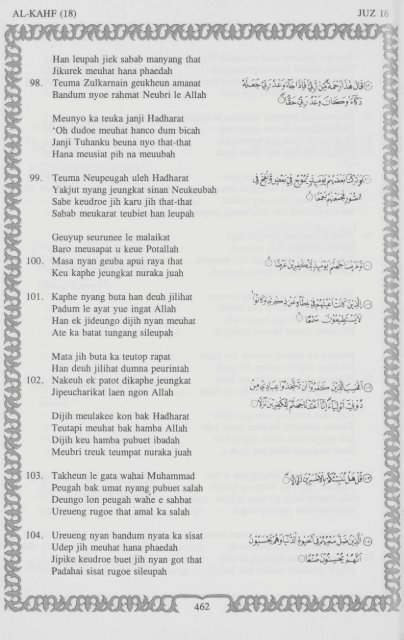 AL-KAHF (18) JUZ 16
Han leupah jiek sabab manyang that
Jikurek meuhat hana phaedah
98. Teuma Zulkarnain geukheun amanat
Bandum nyoe rahmat Neubri le Allah
قَالَ هَٰذَا رَحْمَةٌ مِّن رَّبِّي فَإِذَا جَاءَ وَعْدُ رَبِّي جَعَلَهُ
دَكَّاءَ وَكَانَ وَعْدُ رَبِّي حَقًّا
Meunyo ka teuka janji Hadharat
'Oh dudoe meuhat hanco dum bicah
Janji Tuhanku beuna nyo that-that
Hana meusiat pih na meuubah
99. Teuma Neupeugah uleh Hadharat
Yakjut nyang jeungkat sinan Neukeubah
Sabe keudroe jih karu jih that-that
Sabab meukarat teubiet han leupah
وَتَرَكْنَا بَعْضَهُمْ يَوْمَئِذٍ يَمُوجُ فِي بَعْضٍ وَنُفِخَ فِي
الصُّورِ فَجَمَعْنَاهُمْ جَمْعًا
Geuyup seurunee le malaikat
Baro meusapat u keue Potallah
100. Masa nyan geuba apui raya that
Keu kaphe jeungkat nuraka juah
وَعَرَضْنَا جَهَنَّمَ يَوْمَئِذٍ لِّلْكَافِرِينَ عَرْضًا
101. Kaphe nyang buta han deuh jilihat
Padum le ayat yue ingat Allah
Han ek jideungo dijih nyan meuhat
Ate ka batat tungang sileupah
الَّذِينَ كَانَتْ أَعْيُنُهُمْ فِي غِطَاءٍ عَن ذِكْرِي وَكَانُوا
لَا يَسْتَطِيعُونَ سَمْعًا
Mata jih buta ka teutop rapat
Han deuh jilihat dumna peurintah
102. Nakeuh ek patot dikaphe jeungkat
Jipeucharikat laen ngon Allah
أَفَحَسِبَ الَّذِينَ كَفَرُوا أَن يَتَّخِذُوا عِبَادِي مِن
دُونِي أَوْلِيَاءَ إِنَّا أَعْتَدْنَا جَهَنَّمَ لِلْكَافِرِينَ نُزُلًا
Dijih meulakee kon bak Hadharat
Teutapi meuhat bak hamba Allah
Dijih keu hamba pubuet ibadah
Meubri treuk teumpat nuraka juah
103. Takheun le gata wahai Muhammad
Peugah bak umat nyang pubuet salah
Deungo lon peugah wahe e sahbat
Ureueng rugoe that amal ka salah
قُلْ هَلْ نُنَبِّئُكُم بِالْأَخْسَرِينَ أَعْمَالًا
104. Ureueng nyan bandum nyata ka sisat
Udep jih meuhat hana phaedah
Jipike keudroe buet jih nyan got that
Padahai sisat rugoe sileupah
الَّذِينَ ضَلَّ سَعْيُهُمْ فِي الْحَيَاةِ الدُّنْيَا وَهُمْ يَحْسَبُونَ
أَنَّهُمْ يُحْسِنُونَ صُنْعًا
462